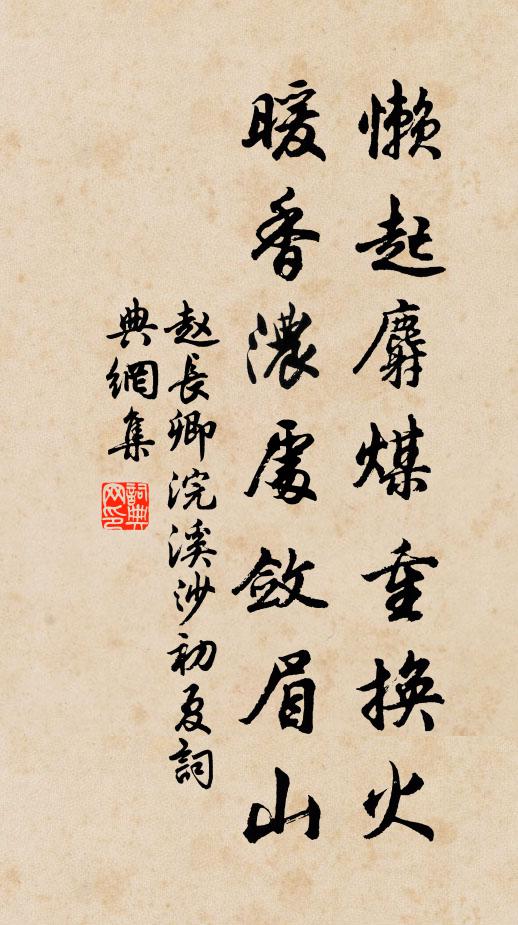 懶起麝煤重換火
暖香濃處斂眉山
赵長卿浣溪沙初夏詞
典網集
詞典
网印